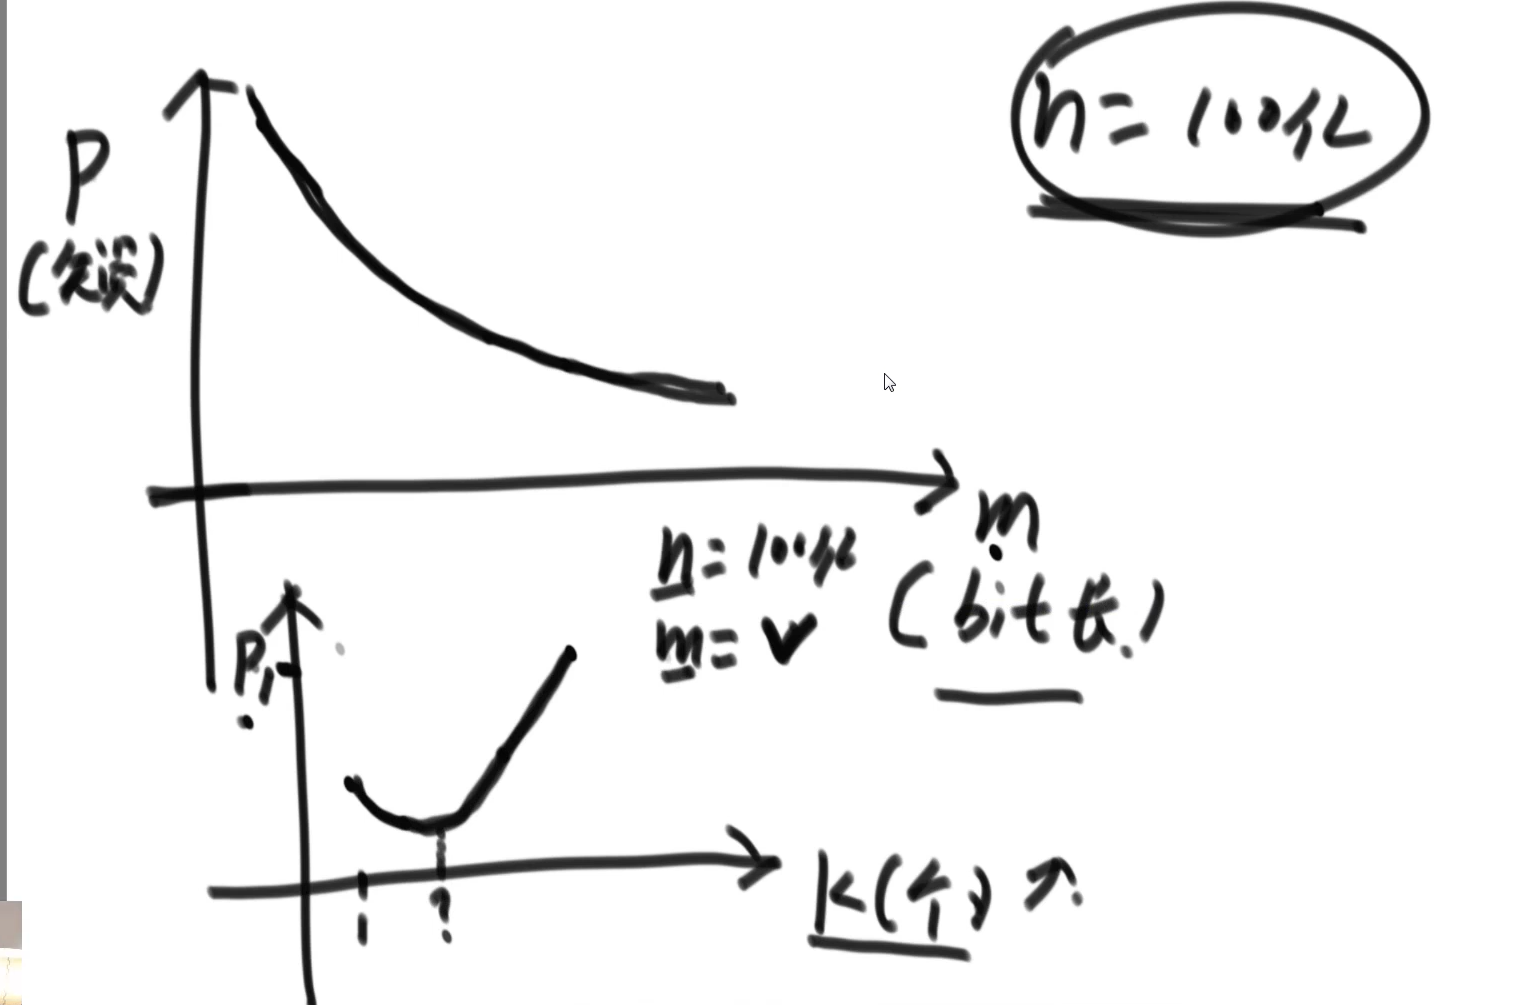 n=100亿
P
(失误)
m
(bit长)
n=100亿
m=✓
P1
1
?
k(个)↗